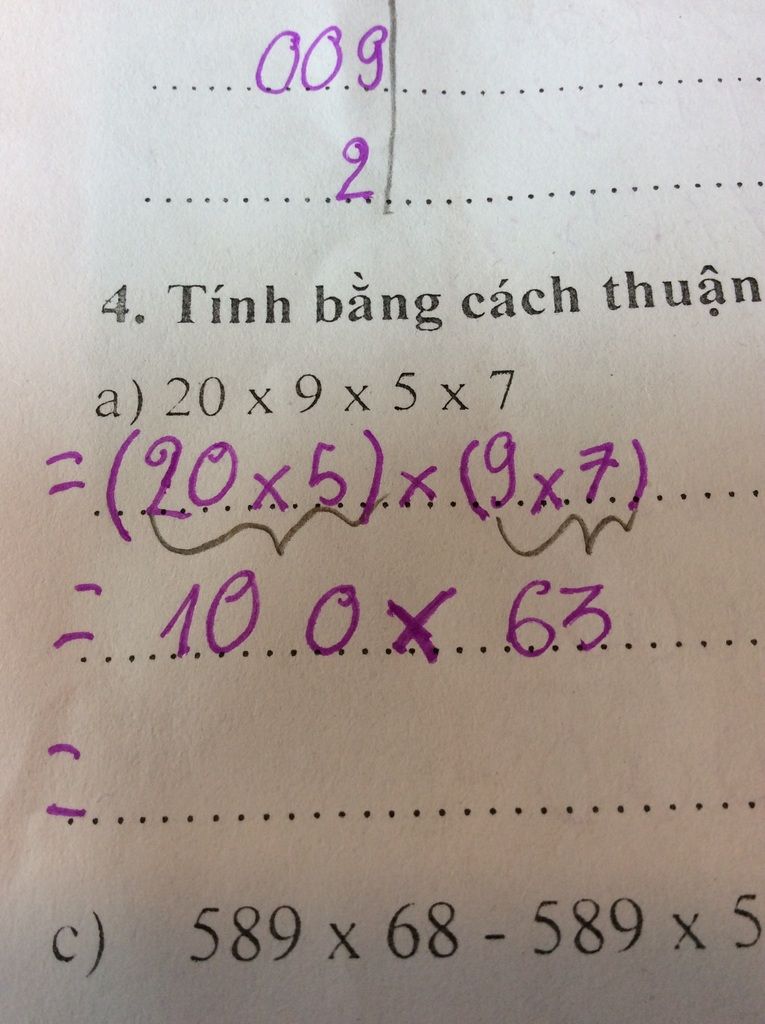 009
2
4. Tính bằng cách thuận
a) 20 x 9 x 5 x 7
= (20 x 5) x (9 x 7)
= 10 0 x 63
=
c) 589 x 68 - 589 x 5